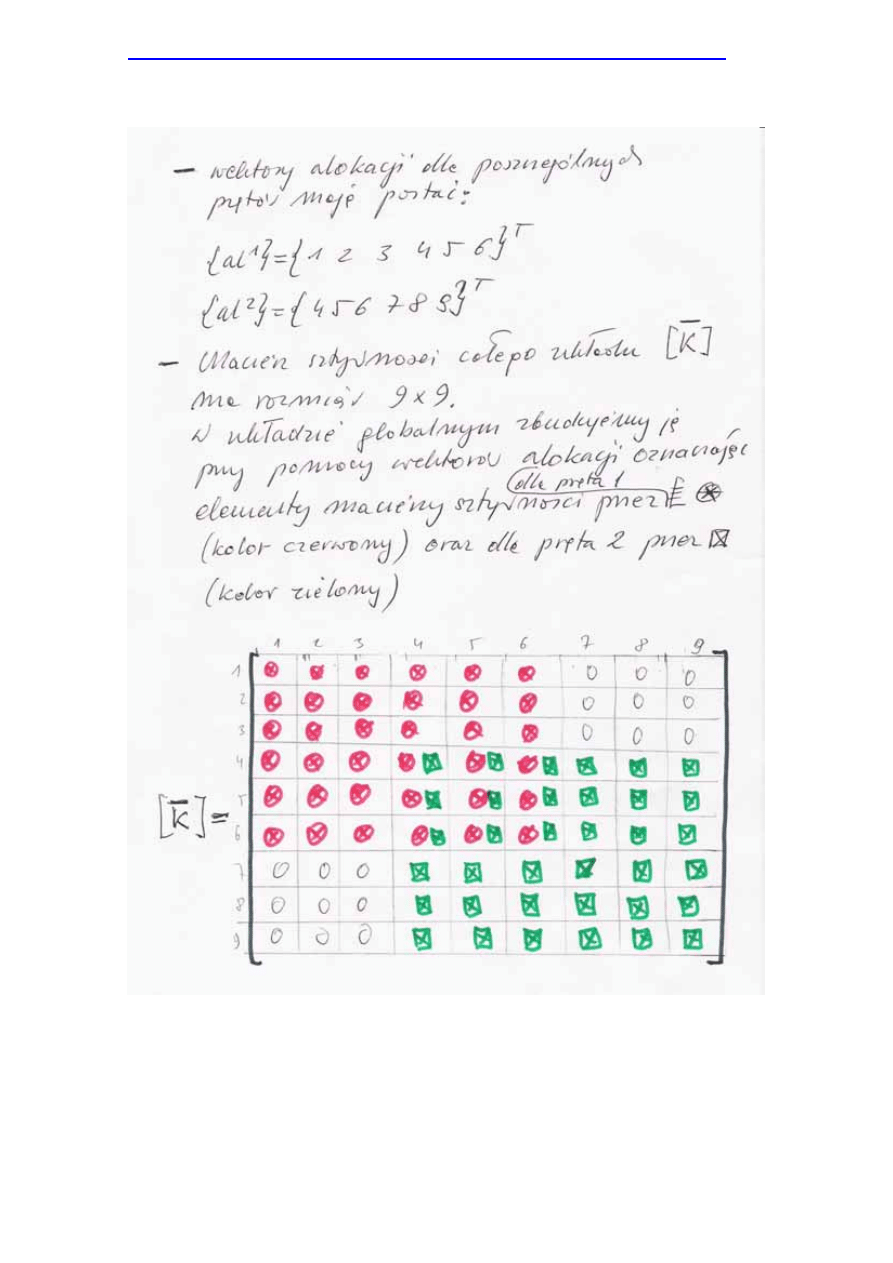 – wektory alokacji dla poszczególnych
prętów mają postać:
{al¹}={1 2 3 4 5 6}ᵀ
{al²}={4 5 6 7 8 9}ᵀ
– Macierz sztywności całego układu [K̅]
ma rozmiar 9 x 9.
W układzie globalnym zbudujemy ją
przy pomocy wektorów alokacji oznaczając
dla pręta 1
elementy macierzy sztywności przez ⊗
(kolor czerwony) oraz dla pręta 2 przez ⊠
(kolor zielony)
1 2 3 4 5 6 7 8 9
1 ⊗ ⊗ ⊗ ⊗ ⊗ ⊗ 0 0 0
2 ⊗ ⊗ ⊗ ⊗ ⊗ ⊗ 0 0 0
3 ⊗ ⊗ ⊗ ⊗ ⊗ ⊗ 0 0 0
4 ⊗ ⊗ ⊗ ⊗⊠ ⊗⊠ ⊗⊠ ⊠ ⊠ ⊠
[K̅]= 5 ⊗ ⊗ ⊗ ⊗⊠ ⊗⊠ ⊗⊠ ⊠ ⊠ ⊠
6 ⊗ ⊗ ⊗ ⊗⊠ ⊗⊠ ⊗⊠ ⊠ ⊠ ⊠
7 0 0 0 ⊠ ⊠ ⊠ ⊠ ⊠ ⊠
8 0 0 0 ⊠ ⊠ ⊠ ⊠ ⊠ ⊠
9 0 0 0 ⊠ ⊠ ⊠ ⊠ ⊠ ⊠